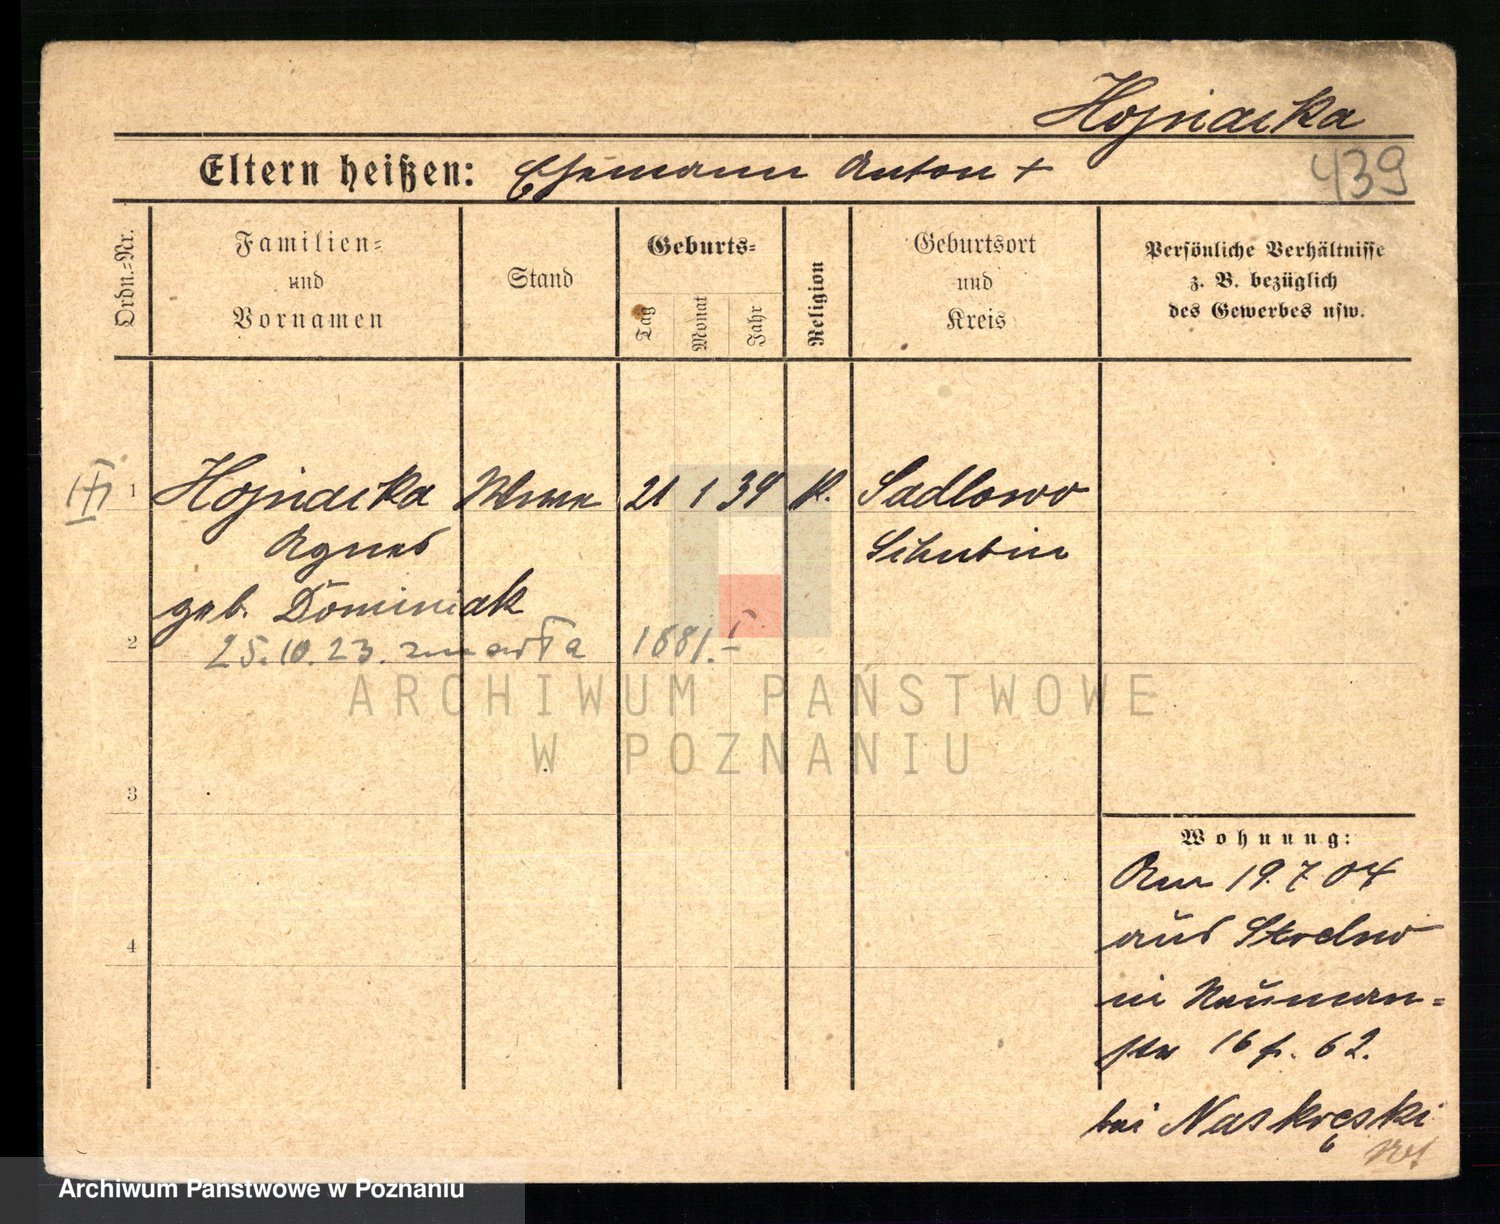 Hojnacka
439
Eltern heißen: Ehemann Anton +
Ordn.=Nr.
Familien=
und
Vornamen
Stand
Geburts=
Tag
Monat
Jahr
Religion
Geburtsort
und
Kreis
Persönliche Verhältnisse
z. B. bezüglich
des Gewerbes usw.
1 Hojnacka Wwe 21 1 34 K. Sadlowo
Agnes Schubin
geb. Dominiak
2 25.10.23. zmarła 1881. I
ARCHIWUM PAŃSTWOWE
W POZNANIU
3
Wohnung:
Am 19.7 04
4 aus Strelno
in Nauman=
str 16 f. 62.
bei Naskręski
Archiwum Państwowe w Poznaniu